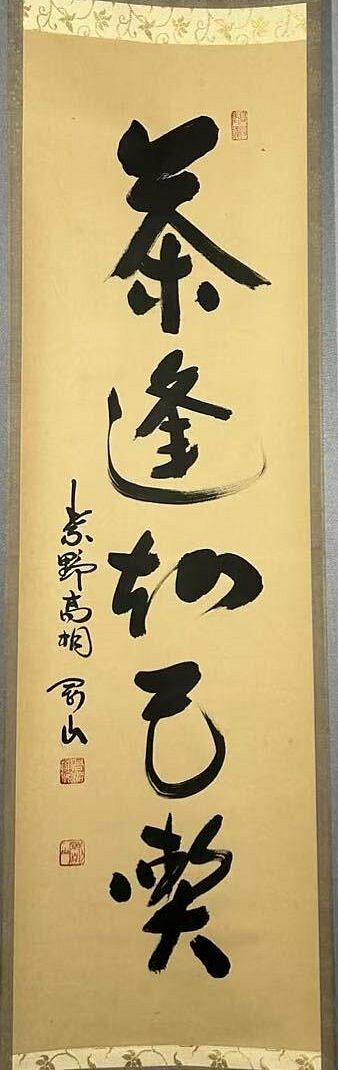 茶逢知己喫
紫野高桐 剛山